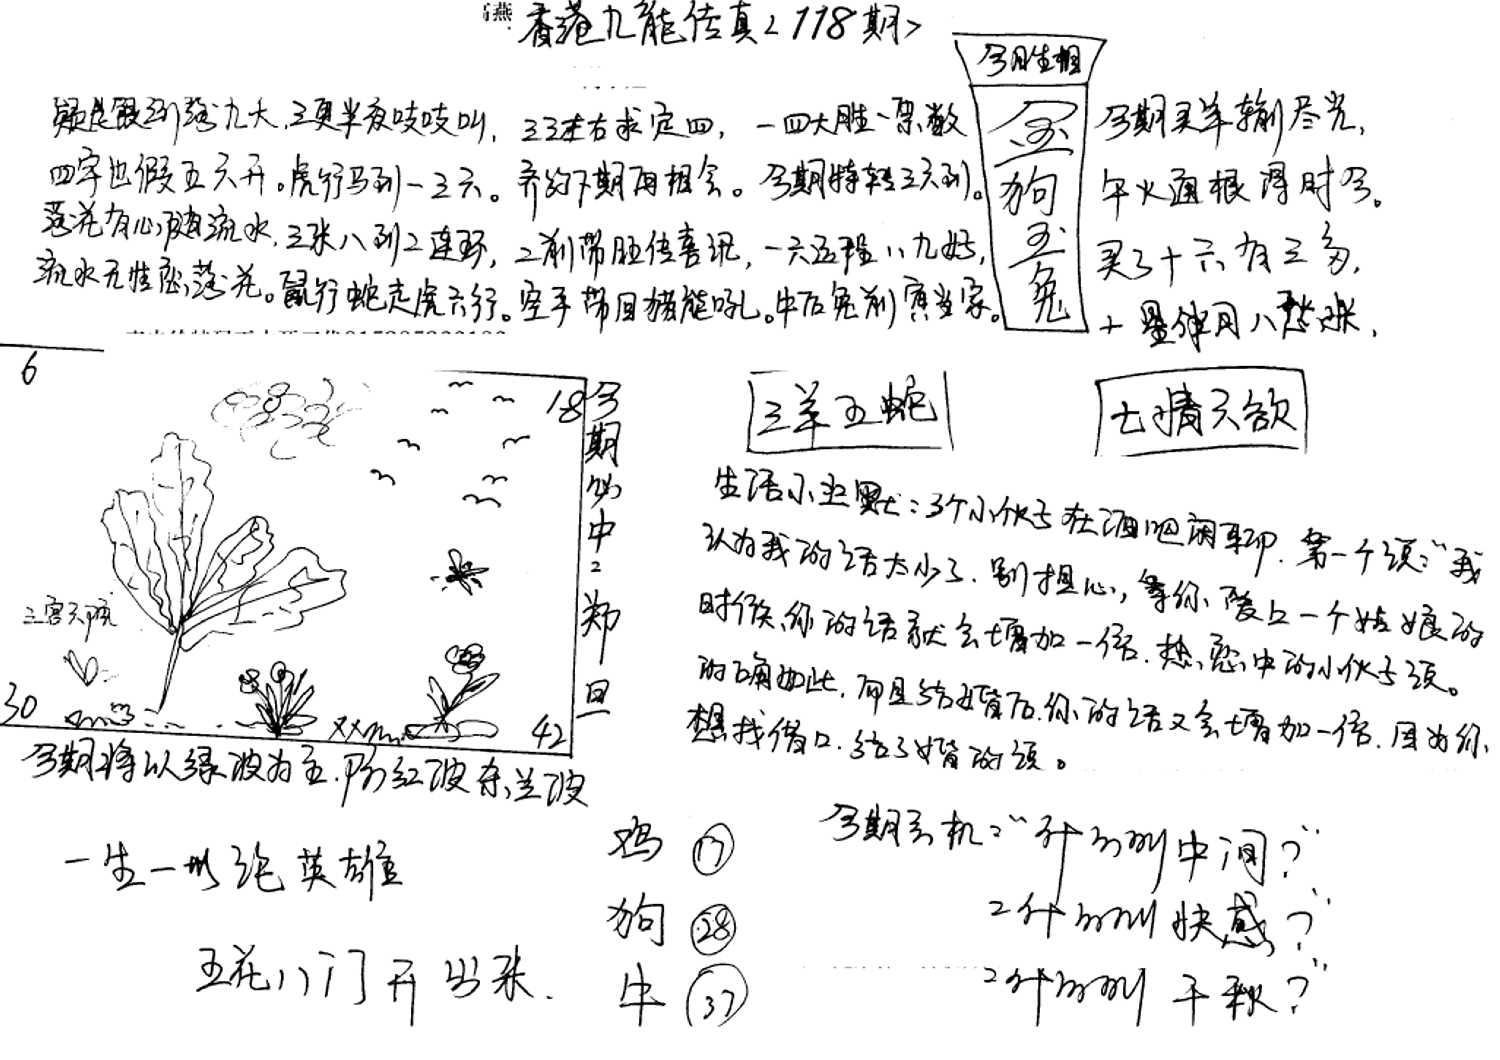 高燕 香港九龙传真<118期>
今日生相
金狗玉兔
九大,三更半夜吱吱叫,
四字也假五六开。虎行马到一三六。
落花有心随流水,三张八到二连环,
流水无性恋落花。鼠行蛇走虎六行。
左右求定四,一四大胜一票数
齐约下期再相会。今期特转三六到。
二前带肚传喜讯,一六五程八九好,
空手带回猪能吼。牛后兔前寅当家。
今期买羊输尽光,
午火通根得时令。
买了十六有三多,
6
18
30
42
今期必中:郑旦
今期将以绿波为主,防红波杀兰波
三羊五蛇
七情六欲
生活小幽默:3个小伙子在酒吧闲聊.第一个说:"我
认为我的话太少了.别担心,等你爱上一个姑娘的
时候,你的话就会增加一倍.热恋中的小伙子说。
的确如此.而且结婚后.你的话又会增加一倍.因为你
想找借口.结了婚的说。
一生一世绝英雄
五花八门开出来.
鸡 17
狗 28
牛 37
今期玄机:"什么叫中间?"
"什么叫快感?"
"什么叫千秋?"